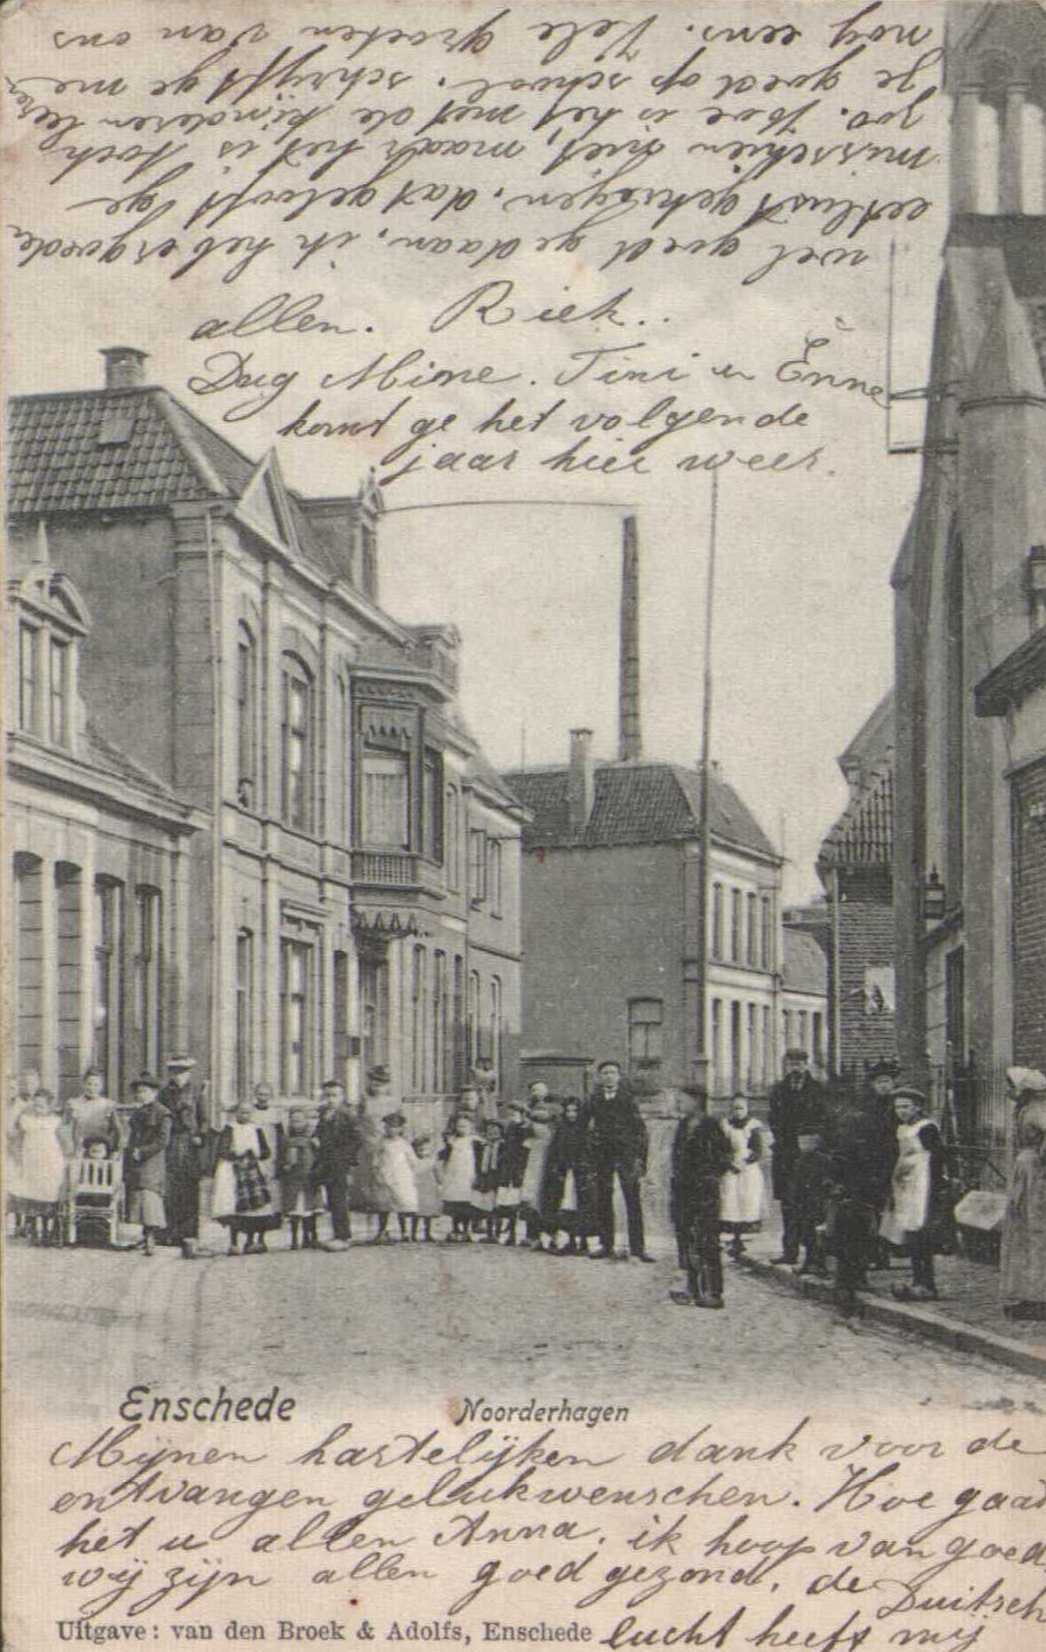 Enschede Noorderhagen
Mijnen hartelijken dank voor de
ontvangen gelukwenschen. Hoe gaat
het u allen Anna, ik hoop van goed
wij zijn allen goed gezond, de Duitsch
Uitgave: van den Broek & Adolfs, Enschede
lucht heeft mij
wel goed gedaan, ik heb er goeden
eetlust gekregen, dat gelooft ge
misschien niet, maar het is toch
zoo. Hoe is het met de kinderen leeren
ze goed op school. schrijft ge me
nog eens. Vele groeten van ons
allen. Riek..
Dag Mine. Tini en Enne
komt ge het volgende
jaar hier weer.